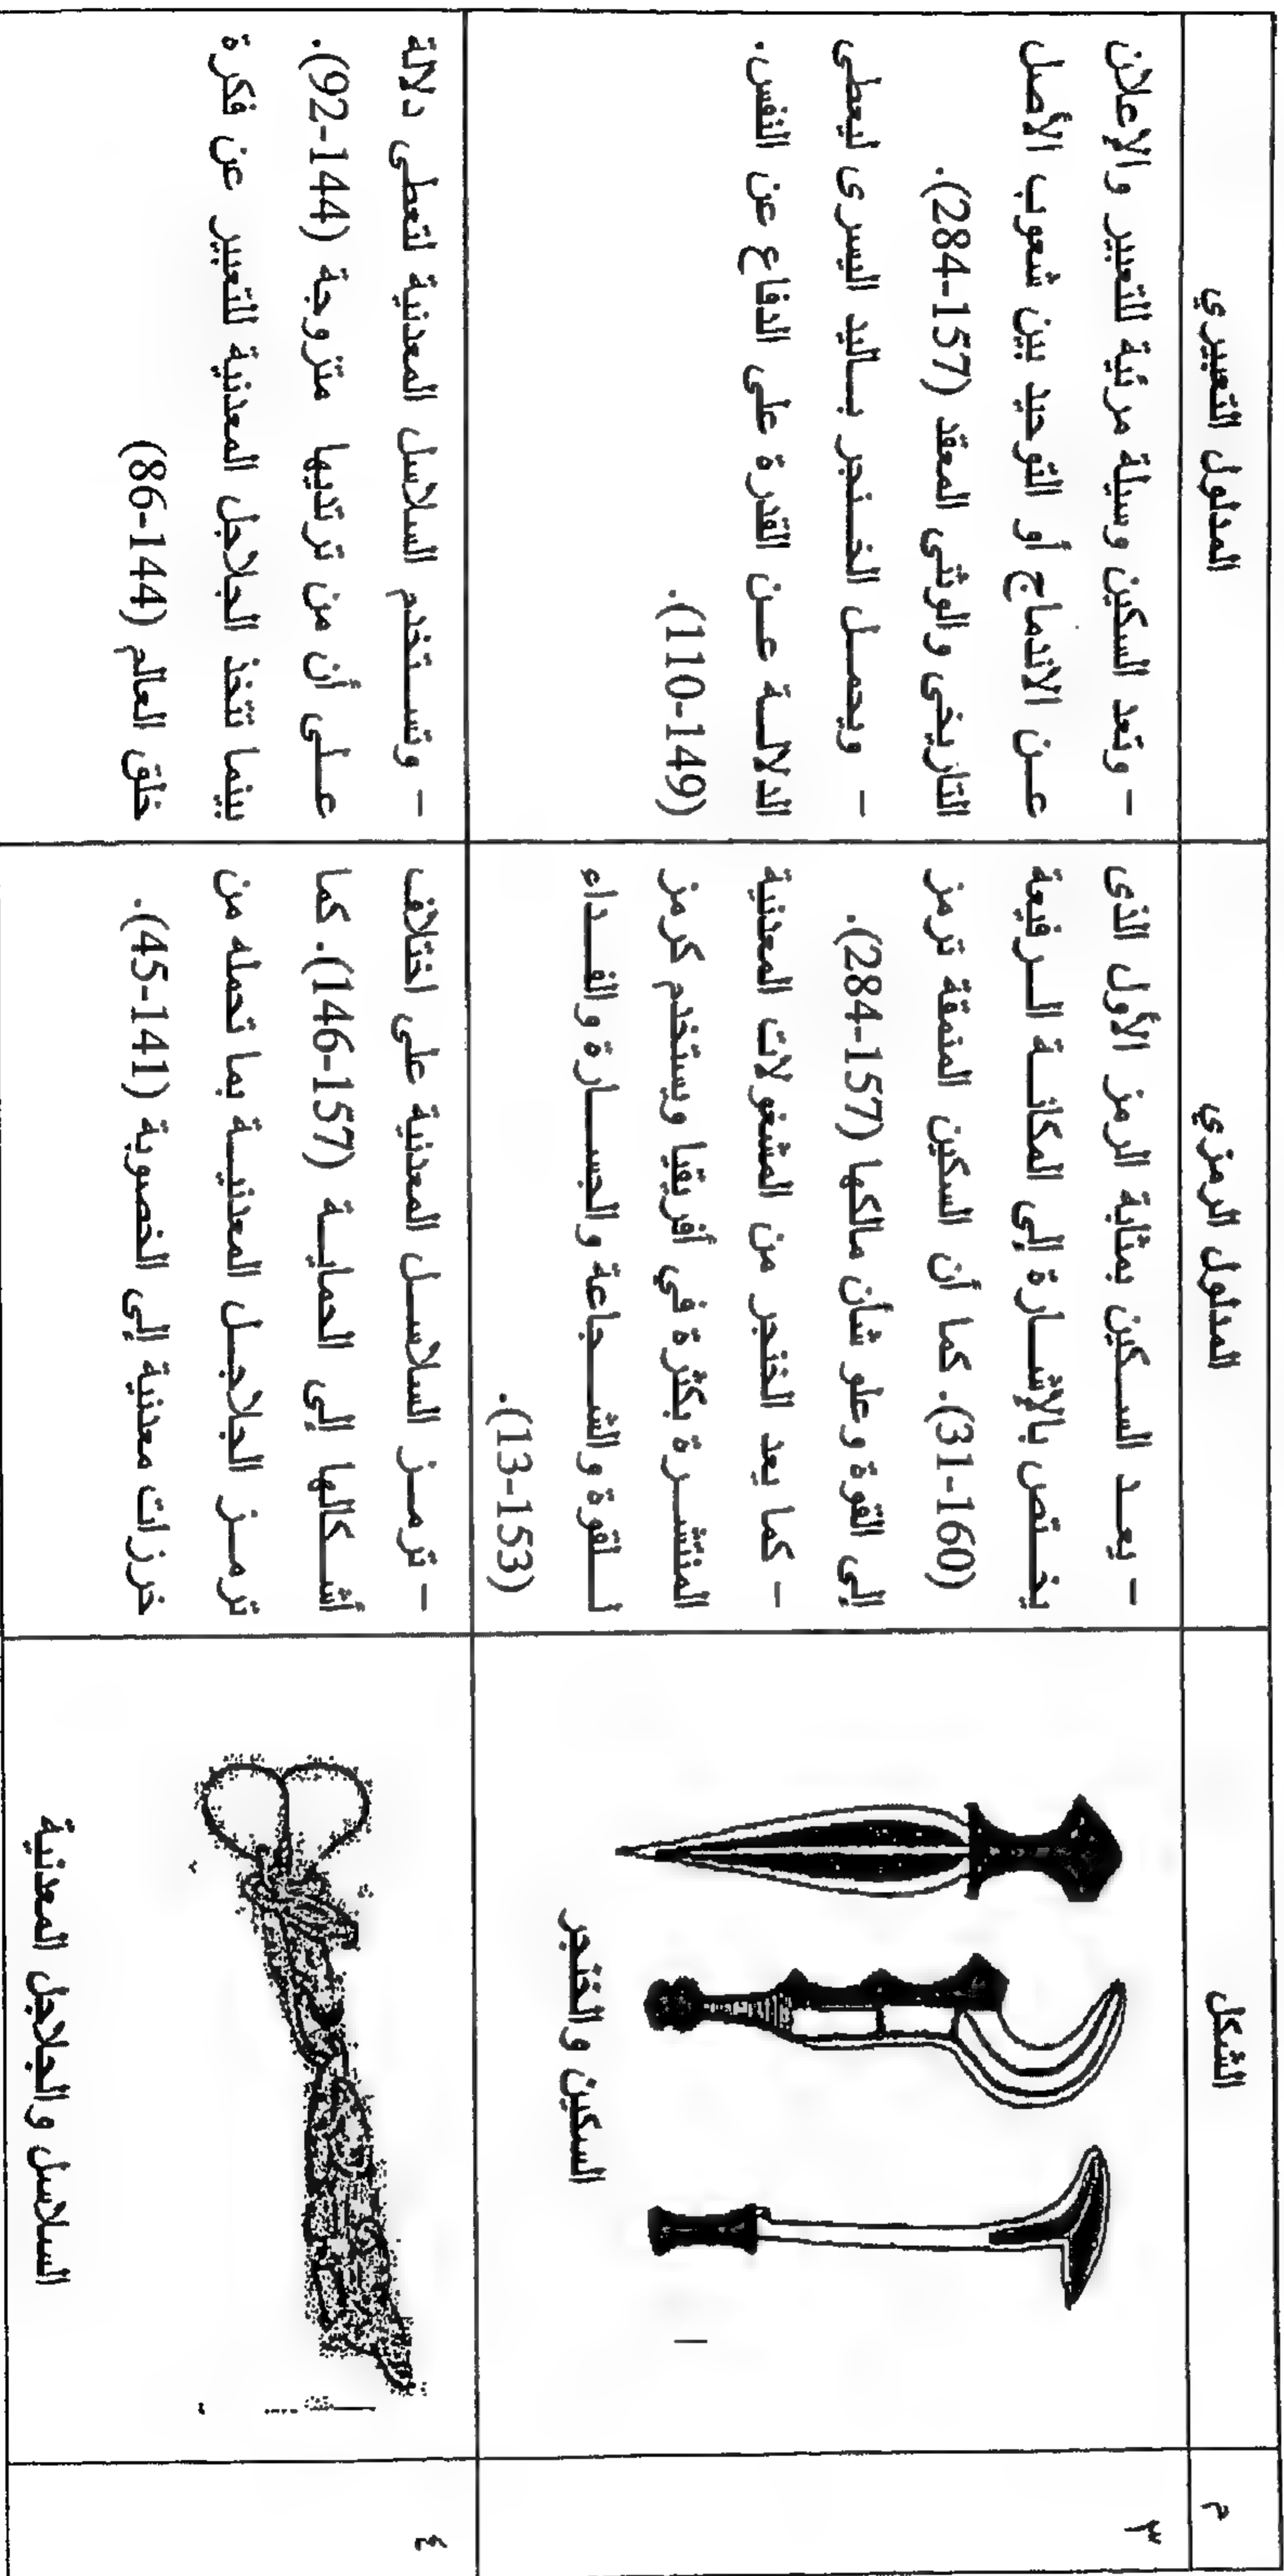 م
الشكل
المدلول الرمزي
المدلول التعبيري
٣
السكين والخنجر
- يعد السكين بمثابة الرمز الأول الذى
يختص بالإشارة إلى المكانة الرفيعة
(31-160). كما أن السكين المنمقة ترمز
إلى القوة وعلو شأن مالكها (284-157).
- كما يعد الخنجر من المشغولات المعدنية
المنتشرة بكثرة في أفريقيا ويستخدم كرمز
لقوة والشجاعة والجسارة والفداء
(13-153).
- وتعد السكين وسيلة مرئية للتعبير والإعلان
عن الاندماج أو التوحيد بين شعوب الأصل
التاريخى والوثنى المعقد (284-157).
- ويحمل الخنجر باليد اليسرى ليعطى
الدلالة عن القدرة على الدفاع عن النفس.
(110-149).
٤
السلاسل والجلاجل المعدنية
- ترمز السلاسل المعدنية على اختلاف
أشكالها إلى الحماية (146-157). كما
ترمز الجلاجل المعدنية بما تحمله من
خرزات معدنية إلى الخصوبة (45-141).
- وتستخدم السلاسل المعدنية لتعطى دلالة
على أن من ترتديها متزوجة (92-144).
بينما تتخذ الجلاجل المعدنية للتعبير عن فكرة
خلق العالم (86-144)